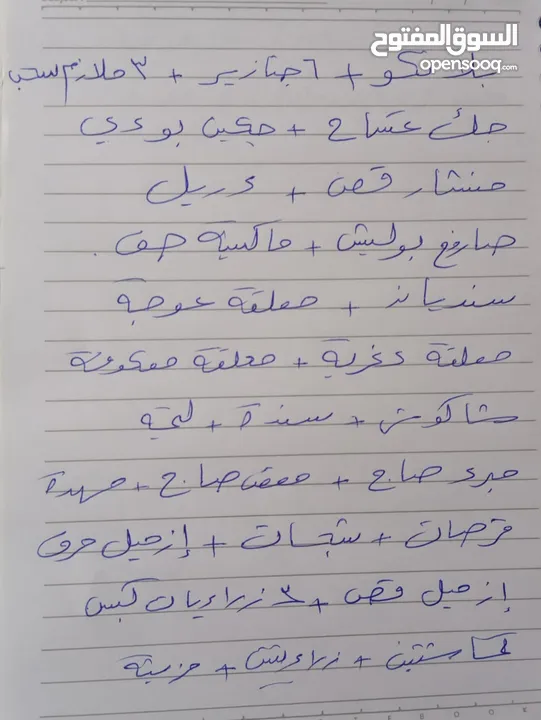 السوق المفتوح
opensooq.com
بلانكو + ٦ جنازير + ٣ ملازم سحب
جك تمساح + جكين بودي
منشار قص + دريل
صاروخ بوليش + ماكينة صف
سنديانة + معلقة عوجة
معلقة دغرية + معلقة معكوفة
شاكوش + سندة + لحية
مبرد صاج + مقص صاج + مهدة
قرصات + شبحات + إزميل حرف
إزميل قص + ٣ زراديات كبس
زرادية + مزيتة